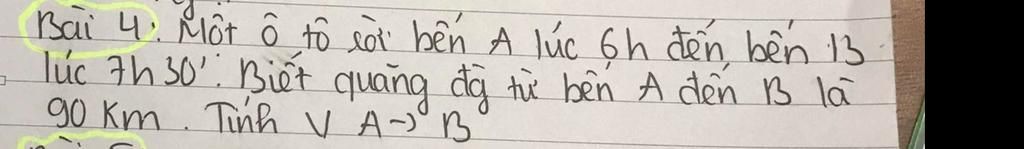 Bài 4. Một ô tô rời bến A lúc 6h đến bến B
lúc 7h30'. Biết quãng đg từ bến A đến B là
90 Km. Tính V A→B